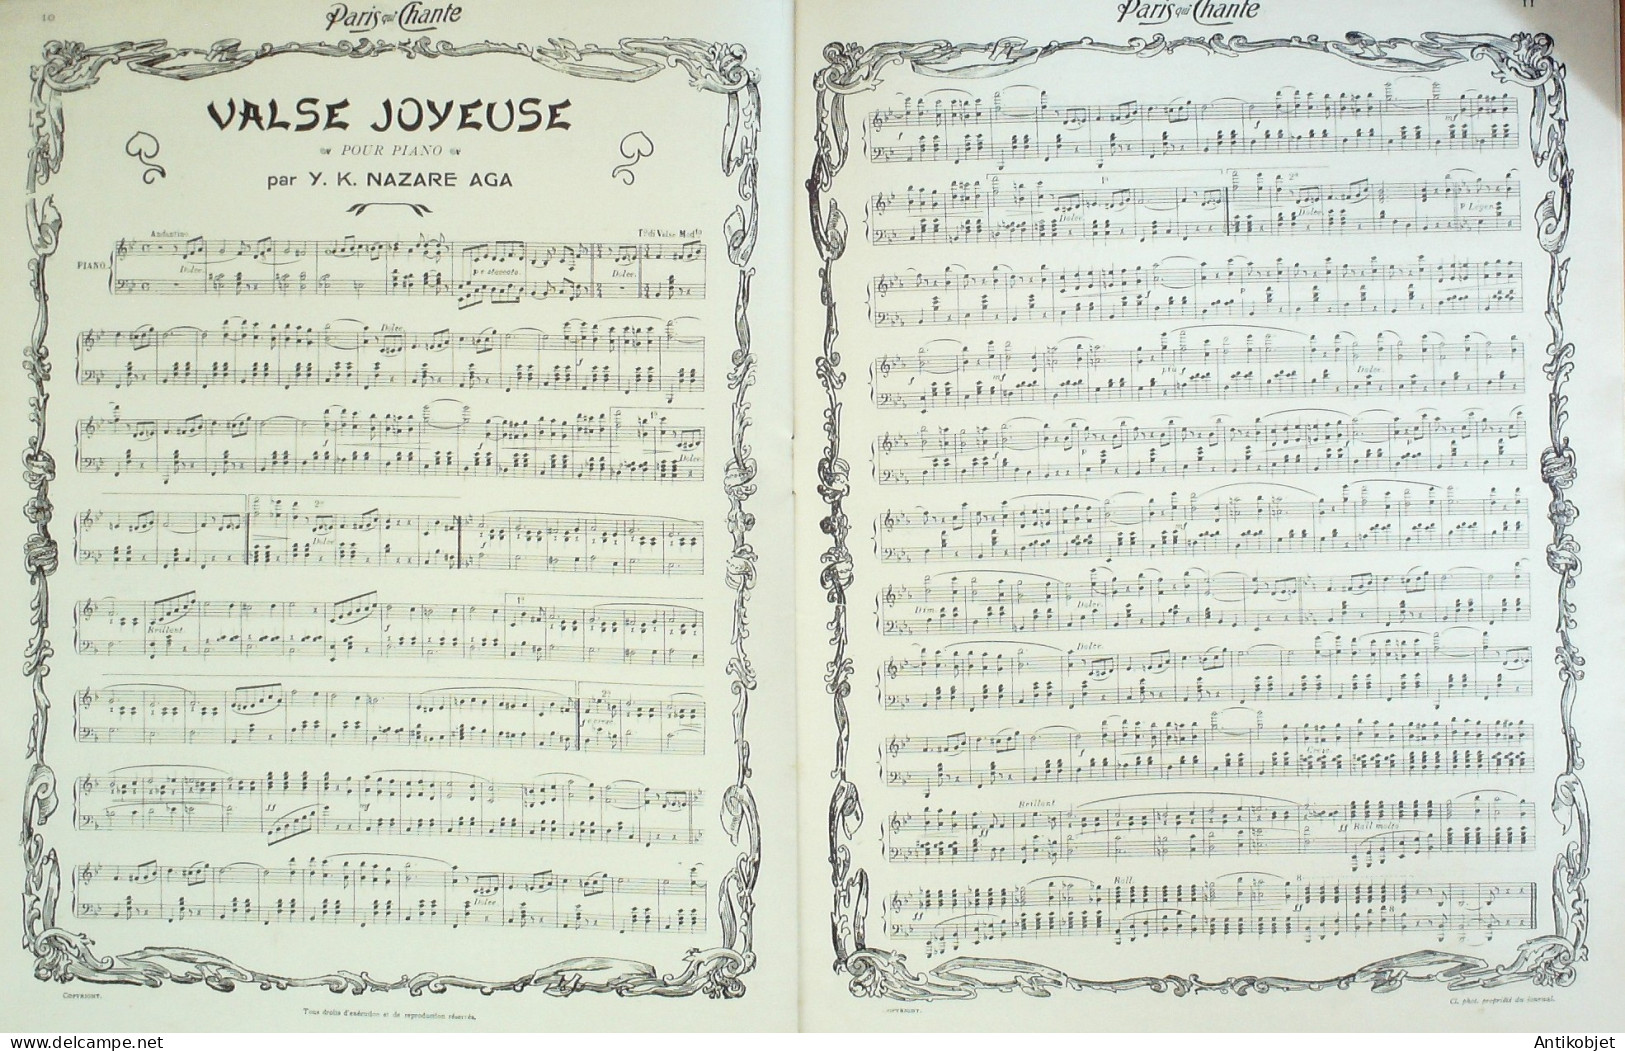 10
Paris qui Chante
VALSE JOYEUSE
POUR PIANO
par Y. K. NAZARE AGA
Andantino
Tº di Valse Modto
PIANO
Dolce.
pr staccato.
Dolce.
Dolce.
f
f
f
1ª
Dolce.
2ª
Dolce.
f
Brillant
1ª
2ª
ff
mf
Dolce.
COPYRIGHT.
Tous droits d'exécution et de reproduction réservés.
Paris qui Chante
11
f
f
1ª
2ª
Dolce.
Dolce.
f
p
f
mf
più f
Dolce.
f
p
mf
Dim.
Dolce.
Dolce.
f
Cresc.
Brillant
ff
2
ff Rall molto
Rall.
8
ff
ff
8
COPYRIGHT.
Cl. phot. propriété du journal.
Antikobjet